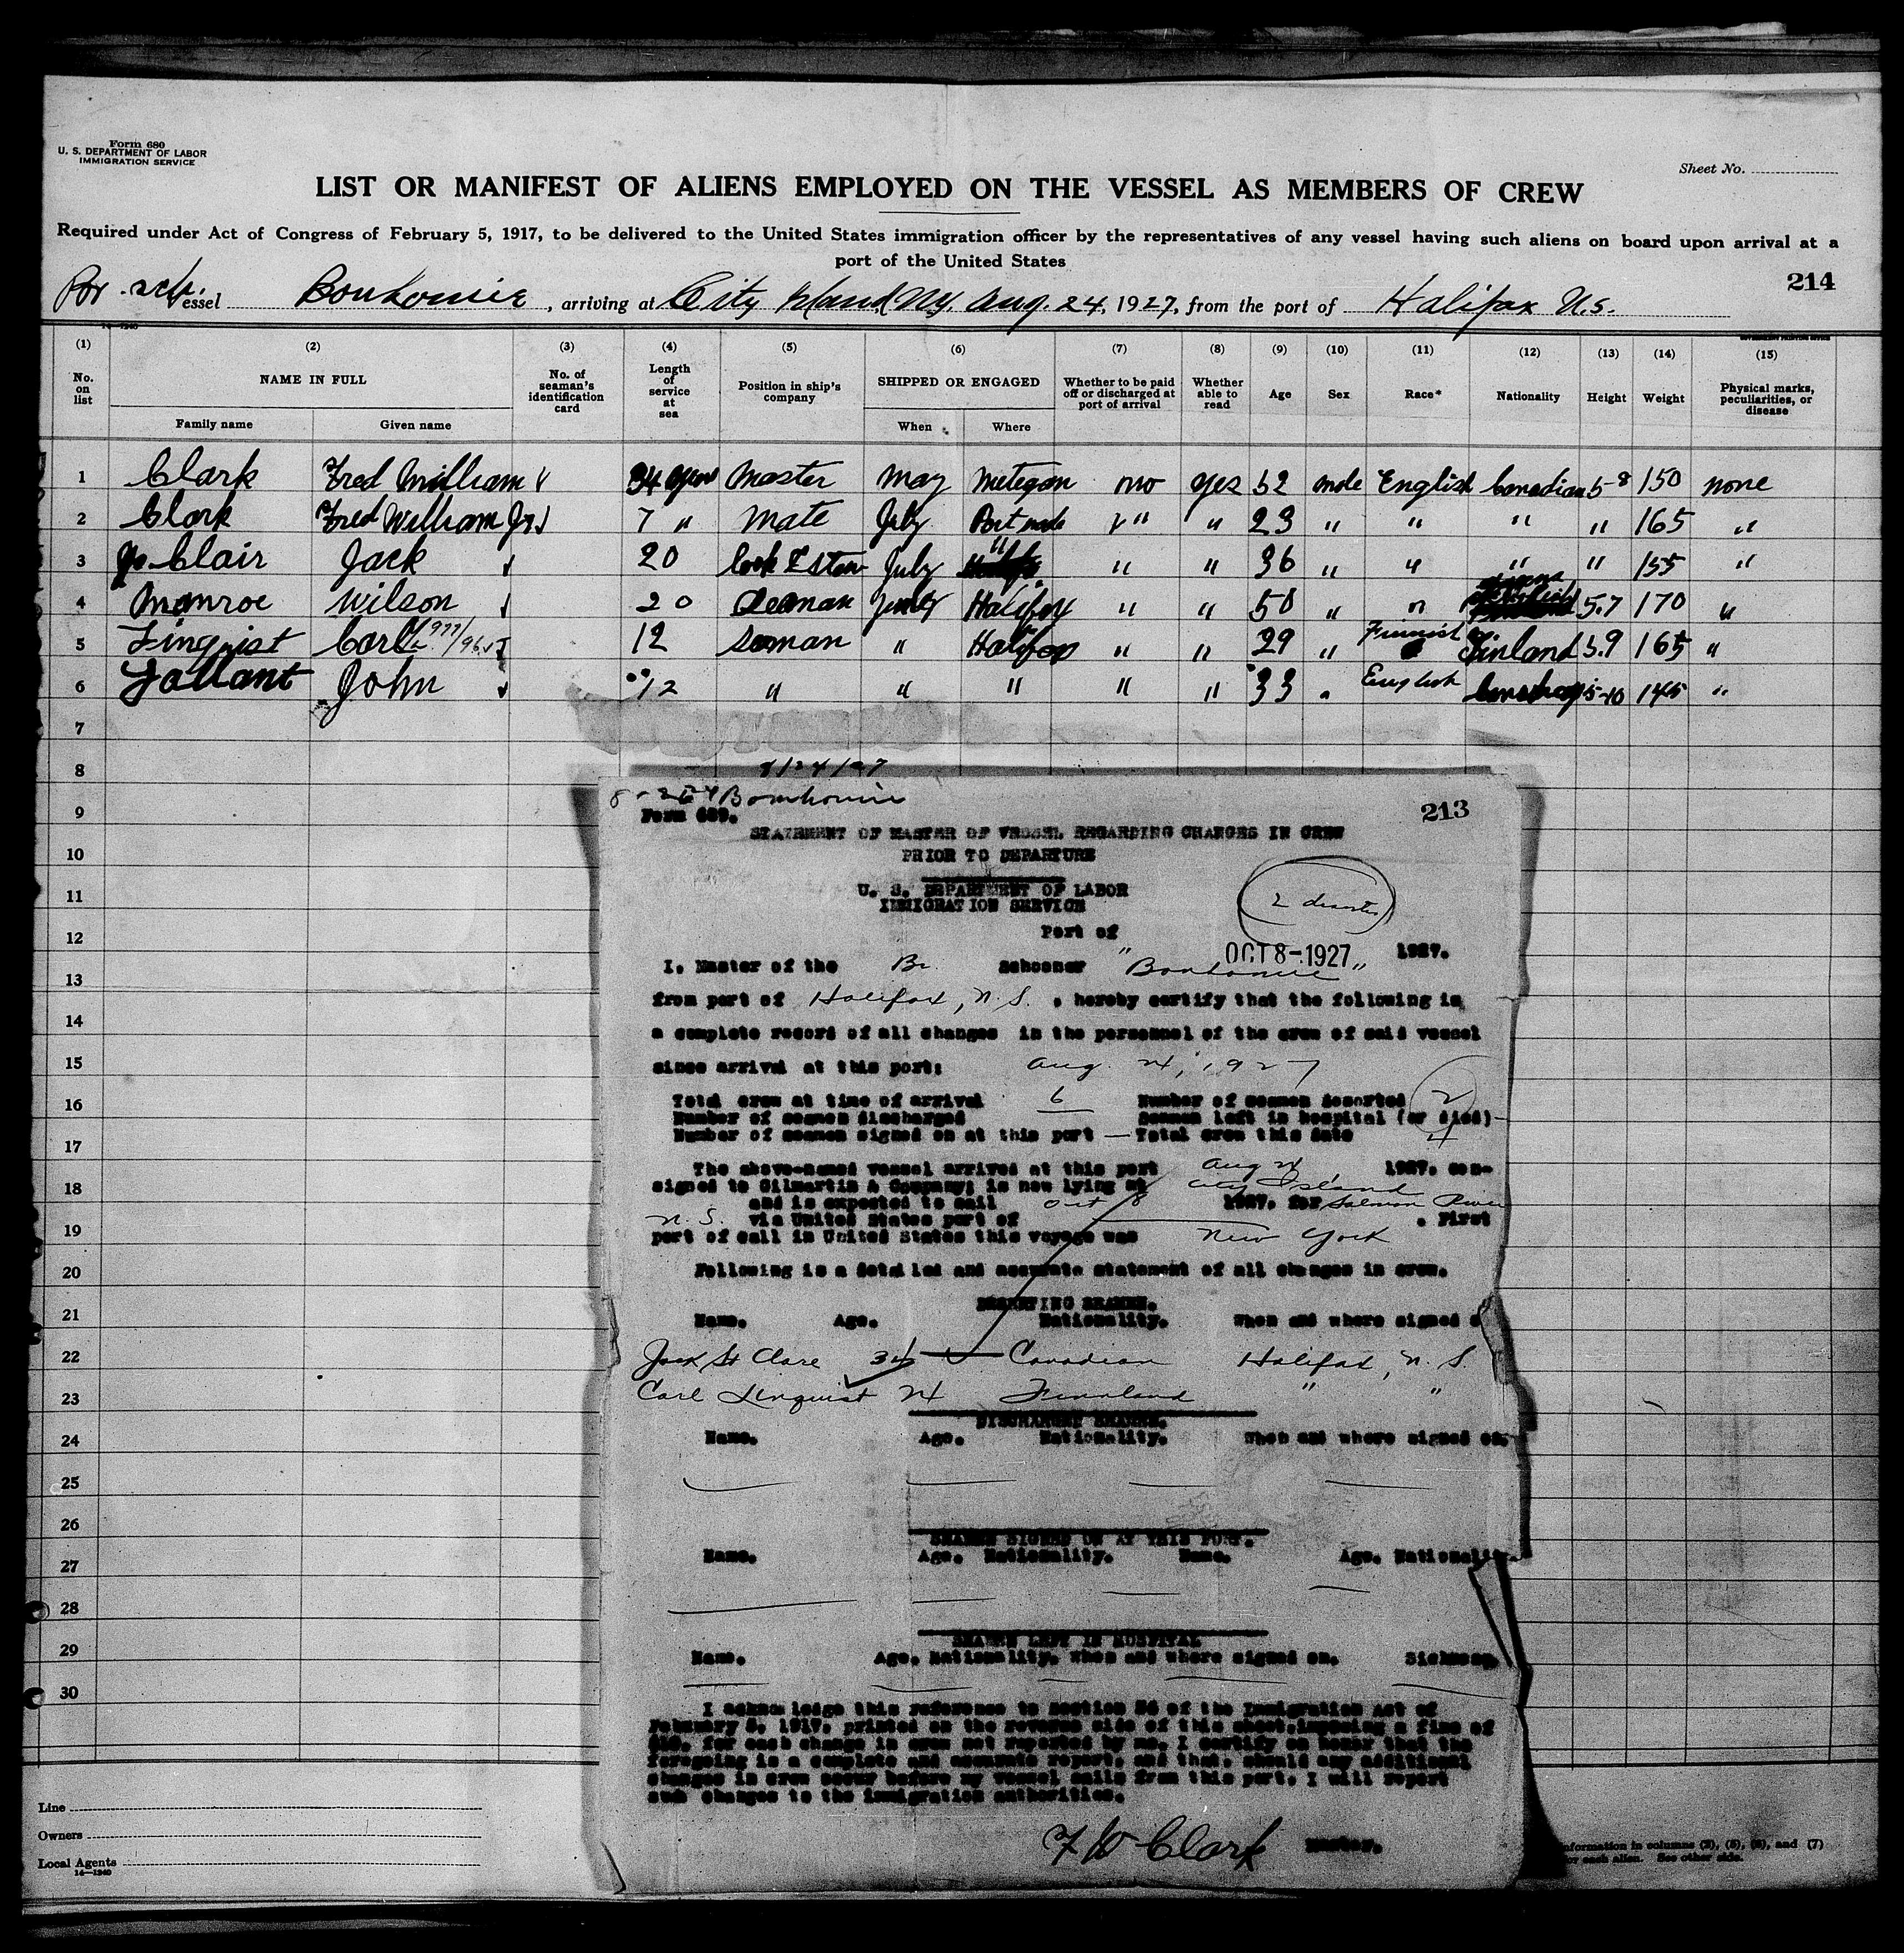 Form 680
U. S. DEPARTMENT OF LABOR
IMMIGRATION SERVICE
Sheet No.
LIST OR MANIFEST OF ALIENS EMPLOYED ON THE VESSEL AS MEMBERS OF CREW
Required under Act of Congress of February 5, 1917, to be delivered to the United States immigration officer by the representatives of any vessel having such aliens on board upon arrival at a
port of the United States
214
sch. essel , arriving at City Island, N.Y. Aug. 24, 1927, from the port of Halifax N.S.
14—1240
(1) (2) (3) (4) (5) (6) (7) (8) (9) (10) (11) (12) (13) (14) (15)
No. on list NAME IN FULL Family name Given name No. of seaman's identification card Length of service at sea Position in ship's company SHIPPED OR ENGAGED When Where Whether to be paid off or discharged at port of arrival Whether able to read Age Sex Race* Nationality Height Weight Physical marks, peculiarities, or disease
1 Clark Fred William 34 years Master May Metegan no yes 52 male English Canadian 5-8 150 none
2 Clark Fred William Jr 7 " Mate July " " 23 " " " " 165 "
3 Clair Jack 20 Cook & Stew July " " " 36 " " " " 155 "
4 Monroe Wilson 20 Seaman Halifax " " 50 " " 5.7 170 "
5 Linquist Carl 12 Seaman " Halifax " " 29 " Finnish Finland 5.9 165 "
6 Tallant John 12 " " " " " 33 " English 5-10 145 "
7
8
9
10
11
12
13
14
15
16
17
18
19
20
21
22
23
24
25
26
27
28
29
30
8/24/27
Form 689.
213
STATEMENT OF MASTER OF VESSEL REGARDING CHANGES IN CREW
PRIOR TO DEPARTURE
U. S. DEPARTMENT OF LABOR
IMMIGRATION SERVICE
Port of
OCT 8-1927 1927.
I, Master of the Br. Schooner
from port of Halifax, N.S. , hereby certify that the following is
a complete record of all changes in the personnel of the crew of said vessel
since arrival at this port: Aug. 24, 1927
Total crew at time of arrival 6 Number of seamen deserted 2
Number of seamen discharged Seamen left in hospital (or died) -
Number of seamen signed on at this port — Total crew this date 4
The above-named vessel arrived at this port Aug 24 1927. con-
signed to Gilmartin & Company; is now lying at City Island
and is expected to sail Oct 8 1927. for Salmon River
N.S. via United States port of . First
port of call in United States this voyage was New York
Following is a detailed and accurate statement of all changes in crew.
DESERTING SEAMEN.
Name. Age. Nationality. When and where signed
Jack St Clare 34 Canadian Halifax, N.S.
Carl Linquist 24 Finnland " "
DISCHARGED SEAMEN.
Name. Age. Nationality. When and where signed on.
SEAMEN SIGNED ON AT THIS PORT.
Name. Age. Nationality. Name. Age. Nationality
SEAMEN LEFT IN HOSPITAL
Name. Age. Nationality. When and where signed on. Sickness.
I acknowledge this reference to Section 36 of the Immigration Act of
February 5, 1917, printed on the reverse side of this sheet, imposing a fine of
$10. for each change in crew not reported by me. I certify on honor that the
foregoing is a complete and accurate report, and that, should any additional
changes in crew occur before my vessel sails from this port, I will report
such changes to the immigration authorities.
F W Clark Master.
Line
Owners
Local Agents
14—1240
information in columns (2), (5), (6), and (7)
for each alien. See other side.